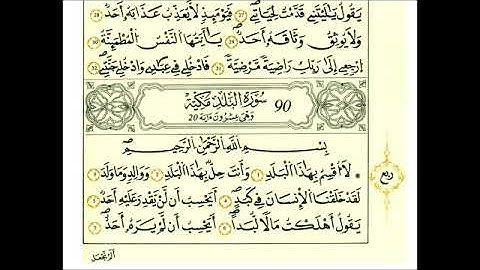 يَقُولُ يَٰلَيْتَنِے قَدَّمْتُ لِحَيَاتِے 27 فَيَوْمَئِذٍ لَّا يُعَذِّبُ عَذَابَهُۥٓ أَحَدٌ 28
وَلَا يُوثِقُ وَثَاقَهُۥٓ أَحَدٌ 29 يَٰٓأَيَّتُهَا اَلنَّفْسُ الْمُطْمَئِنَّةُ 30
اِرْجِعِےٓ إِلَىٰ رَبِّكِ رَاضِيَةً مَّرْضِيَّةً 31 فَادْخُلِے فِے عِبَٰدِے وَادْخُلِے جَنَّتِے 32
90 سُورَةُ الْبَلَدِ مَكِّيَّةٌ
وَهِيَ عِشْرُونَ ءَايَةً 20
بِسْمِ اللَّهِ الرَّحْمَٰنِ الرَّحِيمِ
ربع
لَآ أُقْسِمُ بِهَٰذَا الْبَلَدِ 1 وَأَنتَ حِلٌّ بِهَٰذَا الْبَلَدِ 2 وَوَالِدٍ وَمَا وَلَدَ 3
لَقَدْ خَلَقْنَا الْإِنسَٰنَ فِے كَبَدٍ 4 أَيَحْسِبُ أَن لَّنْ يَقْدِرَ عَلَيْهِ أَحَدٌ 5
يَقُولُ أَهْلَكْتُ مَالًا لُّبَدًا 6 أَيَحْسِبُ أَن لَّمْ يَرَهُۥٓ أَحَدٌ 7
ألم نجعل